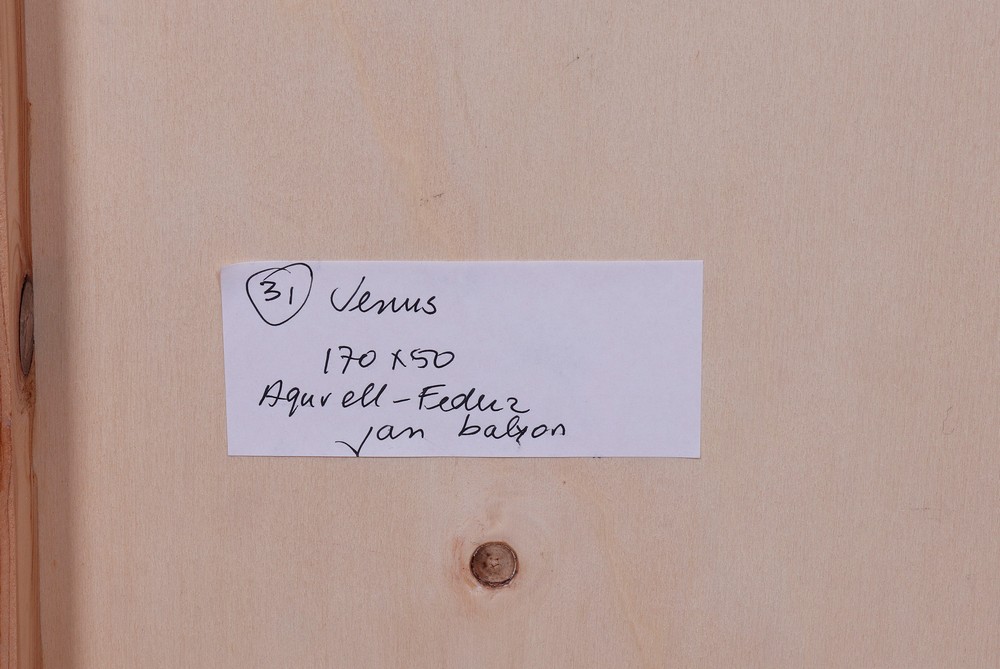 31 Venus
170 x 50
Aqurell - Feder
Jan